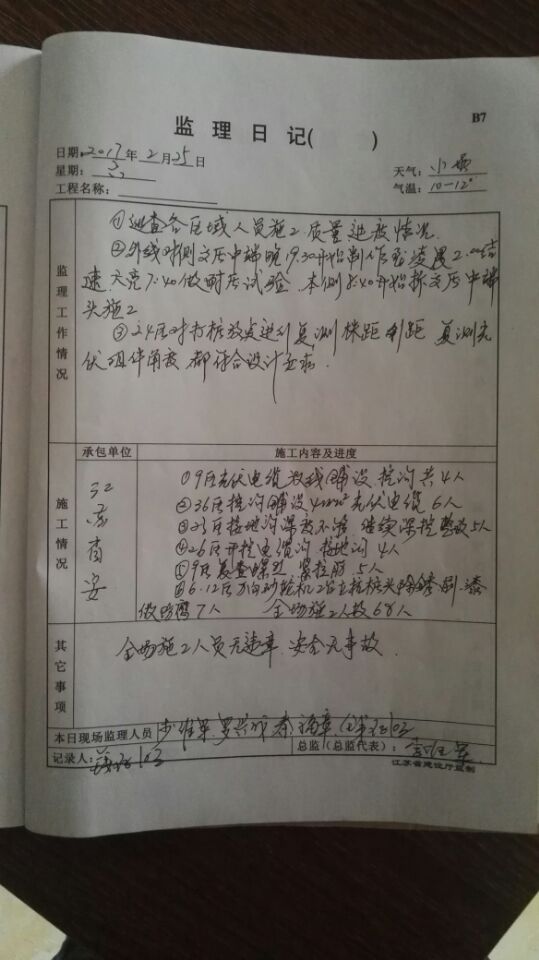 B7
监 理 日 记( )
日期:2017年2月25日
天气:小雨
星期:六
气温:10-12°
工程名称:
监理工作情况
①巡查各区域人员施工质量进度情况
②外线对侧高压中端晚19.30开始制作至凌晨2.00结
速.天亮7:40做耐压试验.本侧8:40开始拆高压中端
头施工
③24区对打桩放点进行复测 株距 行距 复测光
伏组件角度 都符合设计要求.
承包单位
施工内容及进度
施工情况
江苏省安
①9区光伏电缆放线铺设 挖沟共4人
②36区挖沟铺设4mm²光伏电缆6人
③23区接地沟深度不够 继续深挖整改5人
④26区开挖电缆沟 接地沟 4人
⑤9区复查螺丝 紧拉筋 5人
⑥6.12区方向砂轮机2台立柱桩头除锈刷漆
做防腐7人 全场施工人数68人
其它事项
全场施工人员无违章.安全无事故.
本日现场监理人员
记录人:
总监(总监代表):
江苏省建设厅监制